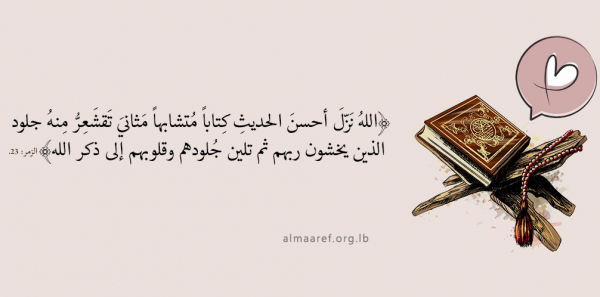 ﴿اللهُ نَزّلَ أحسنَ الحديثِ كِتاباً مُتشابهاً مَثانيَ تَقشَعِرُّ مِنهُ جلود
الذين يخشون ربهم ثم تلين جُلودهم وقلوبهم إلى ذكر الله﴾ الزمر: 23.
almaaref.org.lb